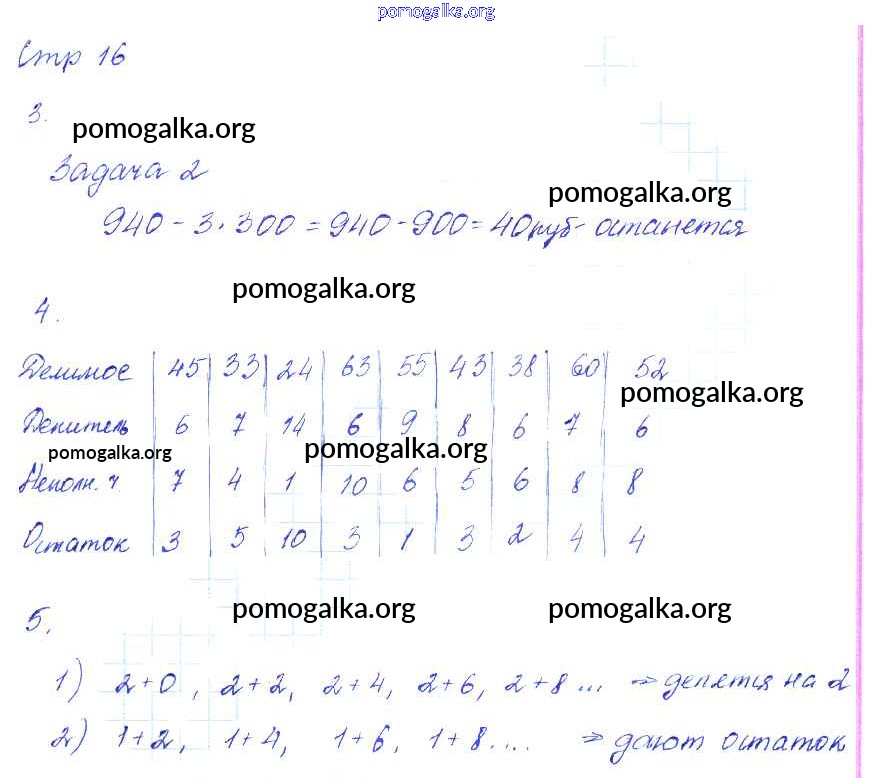 pomogalka.org
Стр 16
3.
pomogalka.org
Задача 2
pomogalka.org
940 - 3 · 300 = 940 - 900 = 40 руб останется
pomogalka.org
4.
Делимое | 45 | 33 | 24 | 63 | 55 | 43 | 38 | 60 | 52
pomogalka.org
Делитель | 6 | 7 | 14 | 6 | 9 | 8 | 6 | 7 | 6
pomogalka.org pomogalka.org
Неполн. ч. | 7 | 4 | 1 | 10 | 6 | 5 | 6 | 8 | 8
Остаток | 3 | 5 | 10 | 3 | 1 | 3 | 2 | 4 | 4
pomogalka.org pomogalka.org
5.
1) 2+0, 2+2, 2+4, 2+6, 2+8 ... ⇒ делятся на 2
2) 1+2, 1+4, 1+6, 1+8.... ⇒ дают остаток